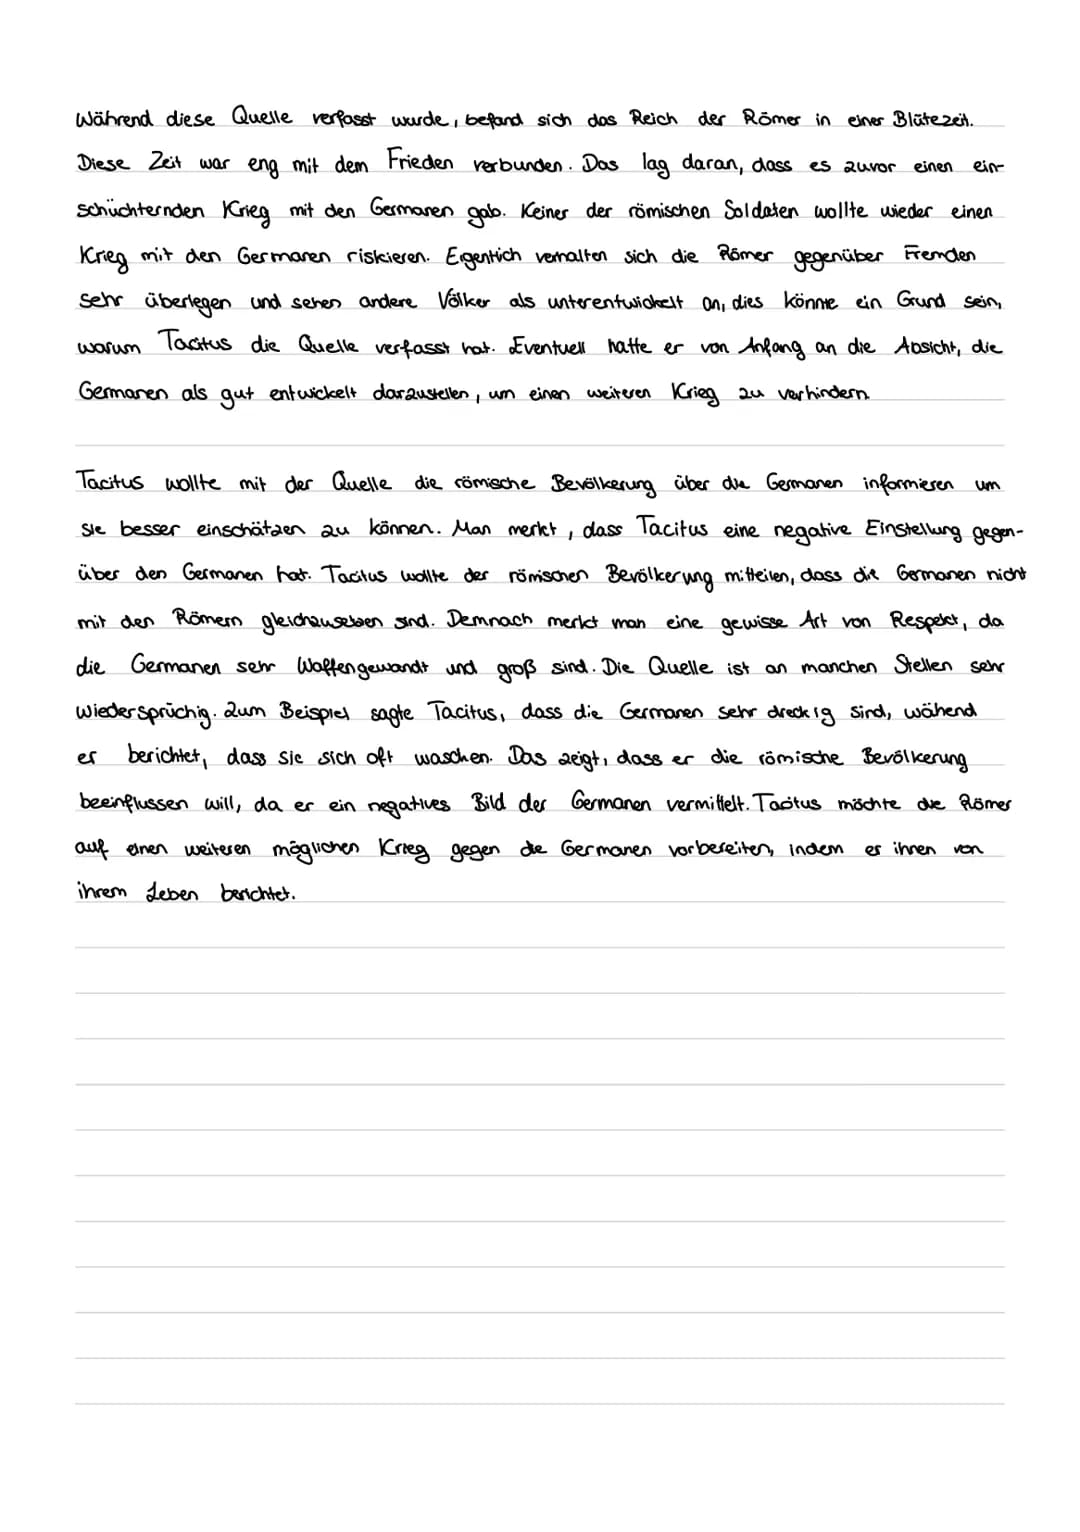 Während diese Quelle verfasst wurde, befand sich das Reich der Römer in einer Blütezeit.
Diese Zeit war eng mit dem Frieden verbunden. Das lag daran, dass es zuvor einen ein-
schüchternden Krieg mit den Germanen gab. Keiner der römischen Soldaten wollte wieder einen
Krieg mit den Germanen riskieren. Eigentlich verhalten sich die Römer gegenüber Fremden
sehr überlegen und sehen andere Völker als unterentwickelt an, dies könnte ein Grund sein,
warum Tacitus die Quelle verfasst hat. Eventuell hatte er von Anfang an die Absicht, die
Germanen als gut entwickelt darzustellen, um einen weiteren Krieg zu verhindern.
Tacitus wollte mit der Quelle die römische Bevölkerung über die Germanen informieren um
sie besser einschätzen zu können. Man merkt, dass Tacitus eine negative Einstellung gegen-
über den Germanen hat. Tacitus wollte der römischen Bevölkerung mitteilen, dass die Germanen nicht
mit den Römern gleichzusetzen sind. Demnach merkt man eine gewisse Art von Respekt, da
die Germanen sehr Waffengewandt und groß sind. Die Quelle ist an manchen Stellen sehr
wiedersprüchig. Zum Beispiel sagte Tacitus, dass die Germanen sehr dreckig sind, wähend
er berichtet, dass sie sich oft waschen. Das zeigt, dass er die römische Bevölkerung
beeinflussen will, da er ein negatives Bild der Germanen vermittelt. Tacitus möchte die Römer
auf einen weiteren möglichen Krieg gegen die Germanen vorbereiten, indem er ihnen von
ihrem Leben berichtet.